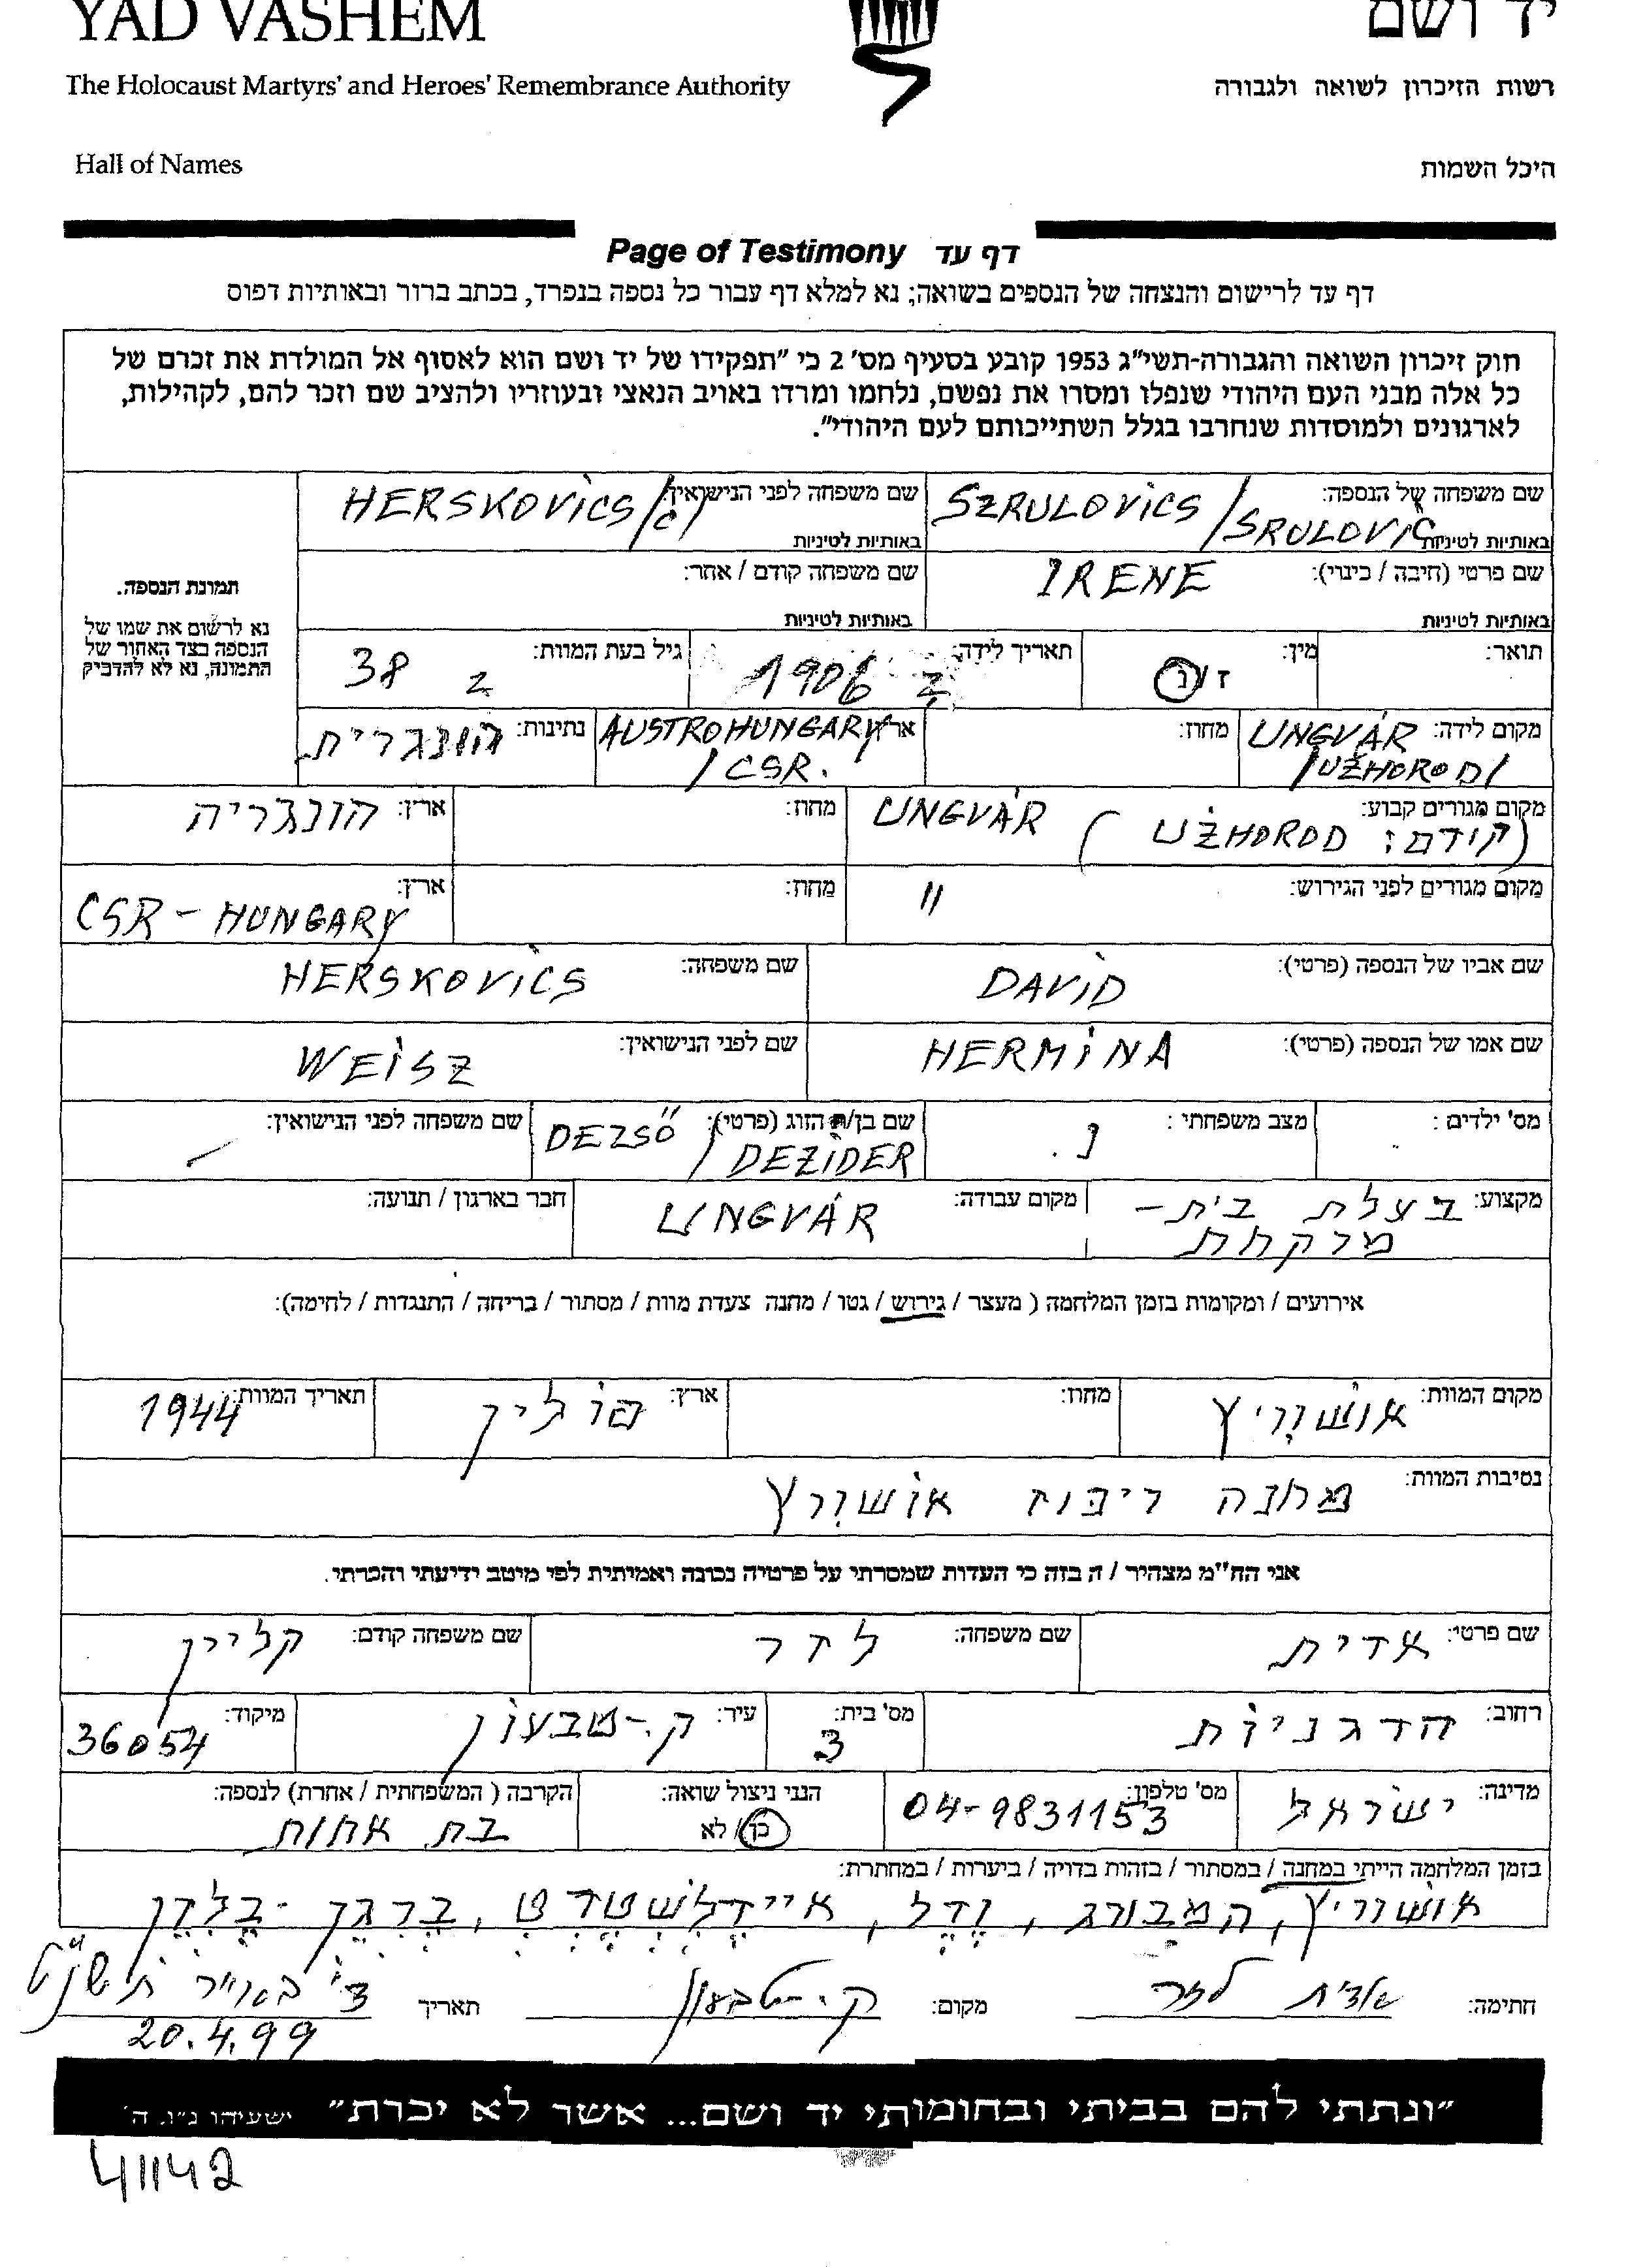 YAD VASHEM
יד ושם
The Holocaust Martyrs' and Heroes' Remembrance Authority
רשות הזיכרון לשואה ולגבורה
Hall of Names
היכל השמות
Page of Testimony דף עד
דף עד לרישום והנצחה של הנספים בשואה; נא למלא דף עבור כל נספה בנפרד, בכתב ברור ובאותיות דפוס
חוק זיכרון השואה והגבורה-תשי"ג 1953 קובע בסעיף מס' 2 כי "תפקידו של יד ושם הוא לאסוף אל המולדת את זכרם של
כל אלה מבני העם היהודי שנפלו ומסרו את נפשם, נלחמו ומרדו באויב הנאצי ובעוזריו ולהציב שם וזכר להם, לקהילות,
לארגונים ולמוסדות שנחרבו בגלל השתייכותם לעם היהודי".
שם משפחה של הנספה: SZRULOVICS / SRULOVIČ
באותיות לטיניות
שם משפחה לפני הנישואין: HERSKOVICS /č/
באותיות לטיניות
תמונת הנספה.
נא לרשום את שמו של
הנספה בצד האחור של
התמונה, נא לא להדביק
שם פרטי (חיבה / כינוי): IRENE
באותיות לטיניות
שם משפחה קודם / אחר:
באותיות לטיניות
תואר:
מין: ז / נ
תאריך לידה: 1906 ?
גיל בעת המוות: 38 ?
מקום לידה: UNGVÁR
/UŽHOROD/
מחוז:
ארץ: AUSTROHUNGARY
/ CSR.
נתינות: הונגרית
מקום מגורים קבוע: UNGVÁR
(קודם: UŽHOROD)
מחוז:
ארץ: הונגריה
מקום מגורים לפני הגירוש: "
מחוז:
ארץ: CSR - HUNGARY
שם אביו של הנספה (פרטי): DAVID
שם משפחה: HERSKOVICS
שם אמו של הנספה (פרטי): HERMINA
שם לפני הנישואין: WEISZ
מס' ילדים:
מצב משפחתי: נ.
שם בן/ת הזוג (פרטי): DEZSŐ
/ DEZIDER
שם משפחה לפני הנישואין: -
מקצוע: בעלת בית-
מרקחת
מקום עבודה: UNGVÁR
חבר בארגון / תנועה:
אירועים / ומקומות בזמן המלחמה ( מעצר / גירוש / גטו / מחנה צעדת מוות / מסתור / בריחה / התנגדות / לחימה):
מקום המוות: אושוויץ
מחוז:
ארץ: פולין
תאריך המוות: 1944
נסיבות המוות: מחנה ריכוז אושוויץ
אני הח"מ מצהיר / ה בזה כי העדות שמסרתי על פרטיה נכונה ואמיתית לפי מיטב ידיעתי והכרתי.
שם פרטי: אדית
שם משפחה: לדר
שם משפחה קודם: קליין
רחוב: הדגניות
מס' בית: 3
עיר: ק.-טבעון
מיקוד: 36054
מדינה: ישראל
מס' טלפון: 04-9831153
הנני ניצול שואה:
כן / לא
הקרבה ( המשפחתית / אחרת) לנספה:
בת אחות
בזמן המלחמה הייתי במחנה / במסתור / בזהות בדויה / ביערות / במחתרת:
אושוויץ, המבורג, וֶדֶל, איידֶלשְטֶדְט, בֶּרגֶן-בֶּלזֶן
חתימה: אדית לדר
מקום: ק.-טבעון
תאריך ד' באייר תשנ"ט
20.4.99
"ונתתי להם בביתי ובחומותי יד ושם... אשר לא יכרת" ישעיהו נ"ו, ה'
41142